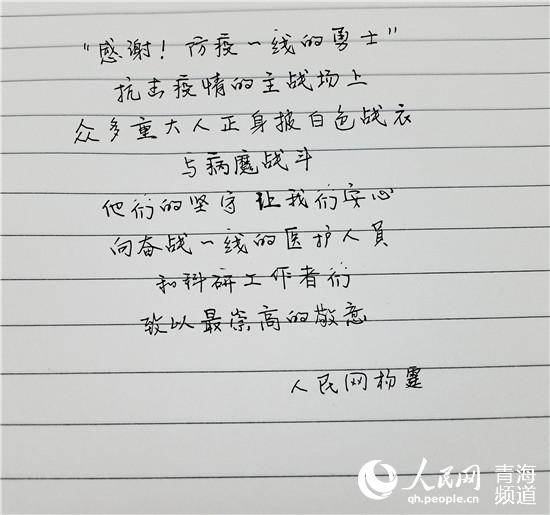 “感谢！防疫一线的勇士”
抗击疫情的主战场上
众多重大人正身披白色战衣
与病魔战斗
他们的坚守让我们安心
向奋战一线的医护人员
和科研工作者们
致以最崇高的敬意
人民网杨霆
人民网
qh.people.cn
青海
频道